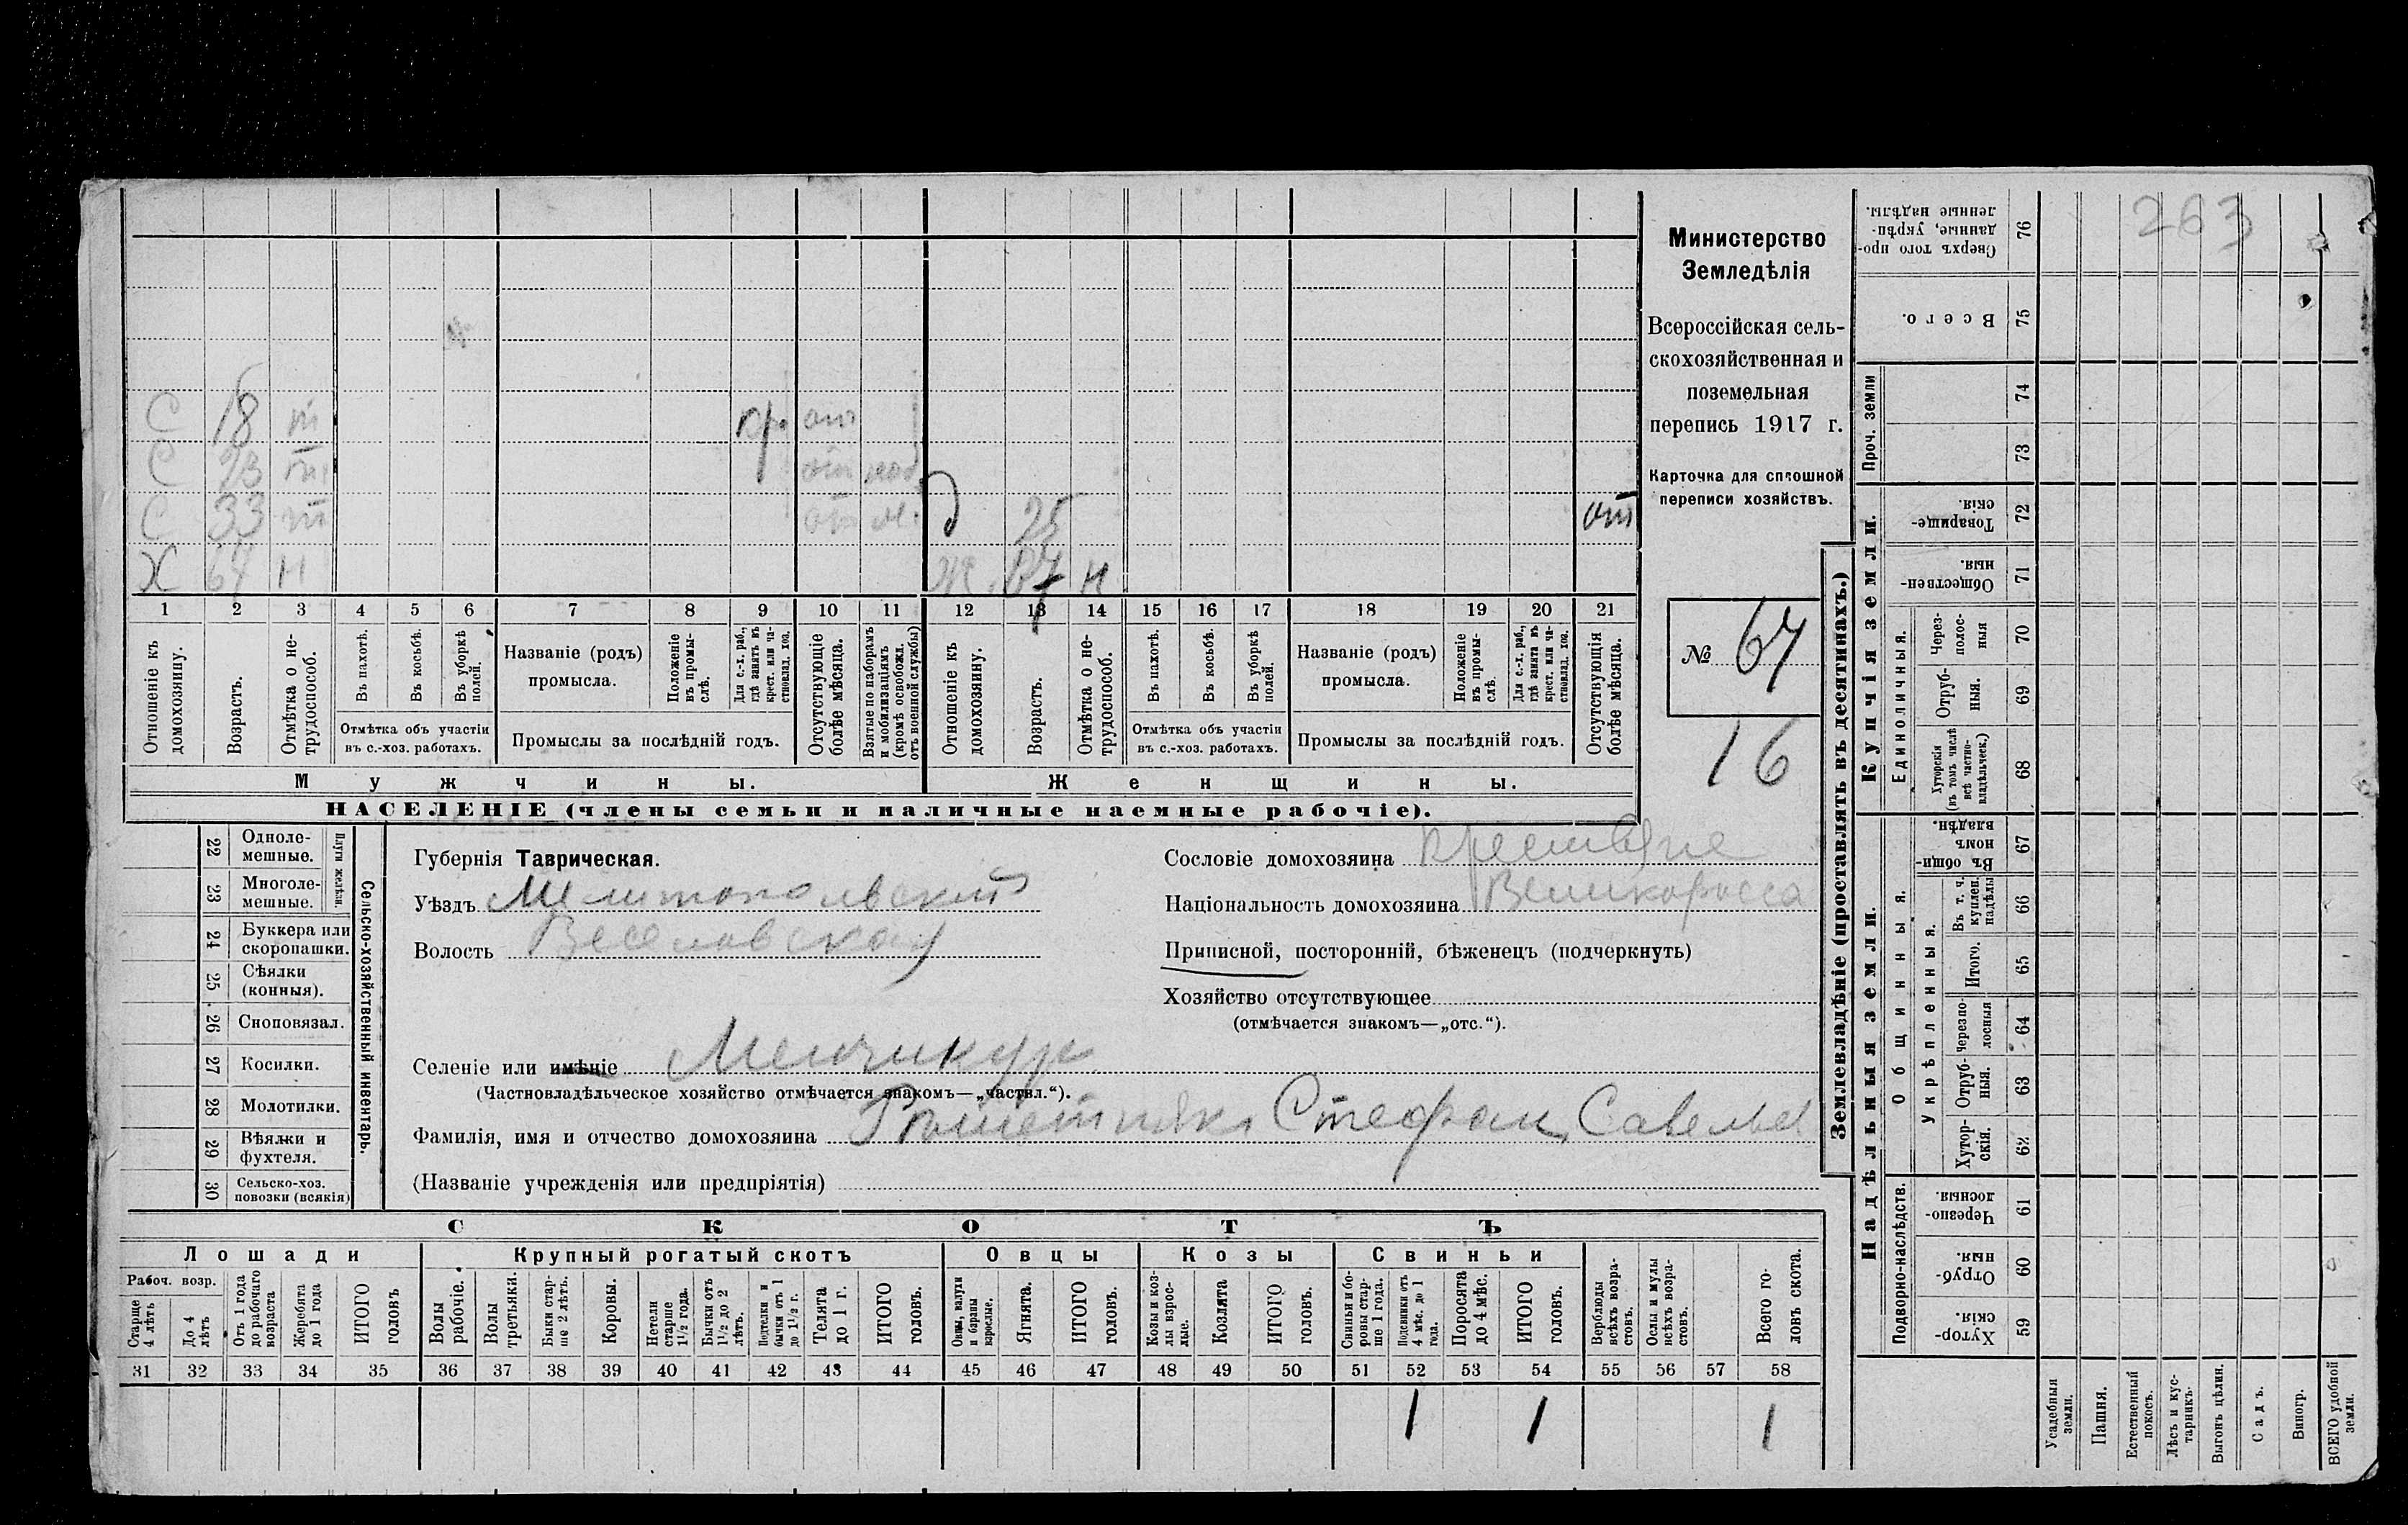 263
Министерство
Земледѣлія
Всероссійская сель-
скохозяйственная и
поземельная
перепись 1917 г.
Карточка для сплошной
переписи хозяйствъ.
№ 67
16
С 18 т пр. от
С т от
С 33 т от д 25 от
Х 64 н Ж н
1 2 3 4 5 6 7 8 9 10 11 12 13 14 15 16 17 18 19 20 21
Отношеніе къ домохозяину.
Возрастъ.
Отмѣтка о не-трудоспособ.
Въ пахотѣ.
Въ косьбѣ.
Въ уборкѣ полей.
Отмѣтка объ участіи
въ с.-хоз. работахъ.
Названіе (родъ)
промысла.
Положеніе въ промы-слѣ.
Для с.-х. раб., гдѣ занятъ въ крест. или ча-стновлад. хоз.
Промыслы за послѣдній годъ.
Отсутствующіе болѣе мѣсяца.
Взятые по наборамъ и мобилизаціямъ (кромѣ освобожд. отъ военной службы)
Отношеніе къ домохозяину.
Возрастъ.
Отмѣтка о не-трудоспособ.
Въ пахотѣ.
Въ косьбѣ.
Въ уборкѣ полей.
Отмѣтка объ участіи
въ с.-хоз. работахъ.
Названіе (родъ)
промысла.
Положеніе въ промы-слѣ.
Для с.-х. раб., гдѣ занята въ крест. или ча-стновлад. хоз.
Промыслы за послѣдній годъ.
Отсутствующія болѣе мѣсяца.
Мужчины.
Женщины.
НАСЕЛЕНІЕ (члены семьи и наличные наемные рабочіе).
Сельско-хозяйственный инвентарь.
Плуги желѣзн.
22 Одноле-мешные.
23 Многоле-мешные.
24 Буккера или скоропашки.
25 Сѣялки (конныя).
26 Сноповязал.
27 Косилки.
28 Молотилки.
29 Вѣялки и фухтеля.
30 Сельско-хоз. повозки (всякія)
Губернія Таврическая.
Уѣздъ Мелитопольскій
Волость Веселовская
Сословіе домохозяина крестьяне
Національность домохозяина Великоросса
Приписной, посторонній, бѣженецъ (подчеркнуть)
Хозяйство отсутствующее
(отмѣчается знакомъ—„отс.“).
Селеніе или имѣніе Менчикур
(Частновладѣльческое хозяйство отмѣчается знакомъ—„частвл.“).
Фамилія, имя и отчество домохозяина Стефан Савельев
(Названіе учрежденія или предпріятія)
СКОТЪ
Лошади
Крупный рогатый скотъ
Овцы
Козы
Свиньи
Рабоч. возр.
Старше 4 лѣтъ
До 4 лѣтъ
Отъ 1 года до рабочаго возраста
Жеребята до 1 года
ИТОГО головъ
Волы рабочіе.
Волы третьяки.
Быки стар-ше 2 лѣтъ.
Коровы.
Нетели старше 1½ года.
Бычки отъ 1½ до 2 лѣтъ.
Подтелки и бычки отъ 1 до 1½ г.
Телята до 1 г.
ИТОГО головъ.
Овцы, валухи и бараны взрослые.
Ягнята.
ИТОГО головъ.
Козы и коз-лы взрос-лые.
Козлята
ИТОГО головъ.
Свиньи и бо-ровы стар-ше 1 года.
Подсвинки отъ 4 мѣс. до 1 года.
Поросята до 4 мѣс.
ИТОГО головъ.
Верблюды всѣхъ возра-стовъ.
Ослы и мулы всѣхъ возра-стовъ.
Всего го-ловъ скота.
31 32 33 34 35 36 37 38 39 40 41 42 43 44 45 46 47 48 49 50 51 52 53 54 55 56 57 58
1 1 1
Землевладѣніе (проставлять въ десятинахъ.)
Купчія земли.
Надѣльныя земли.
Сверхъ того про-данные, укрѣп-ленные надѣлы. 76
Всего. 75
Проч. земли
74
73
Товарище-скія. 72
Обществен-ныя. 71
Единоличныя.
Через-полос-ныя 70
Отруб-ныя. 69
Хуторскія (въ томъ числѣ всѣ частно-владѣльческ.) 68
Общинныя.
Въ общин-номъ владѣн. 67
Укрѣпленныя.
Въ т. ч. куплен. надѣлы 66
Итого. 65
Черезпо-лосныя 64
Отруб-ныя. 63
Хутор-скія. 62
Подворно-наслѣдств.
Черезпо-лосныя. 61
Отруб-ныя. 60
Хутор-скія. 59
Усадебныя земли.
Пашня.
Естественный покосъ.
Лѣсъ и кус-тарникъ.
Выгонъ цѣлин.
Садъ.
Виногр.
ВСЕГО удобной земли.